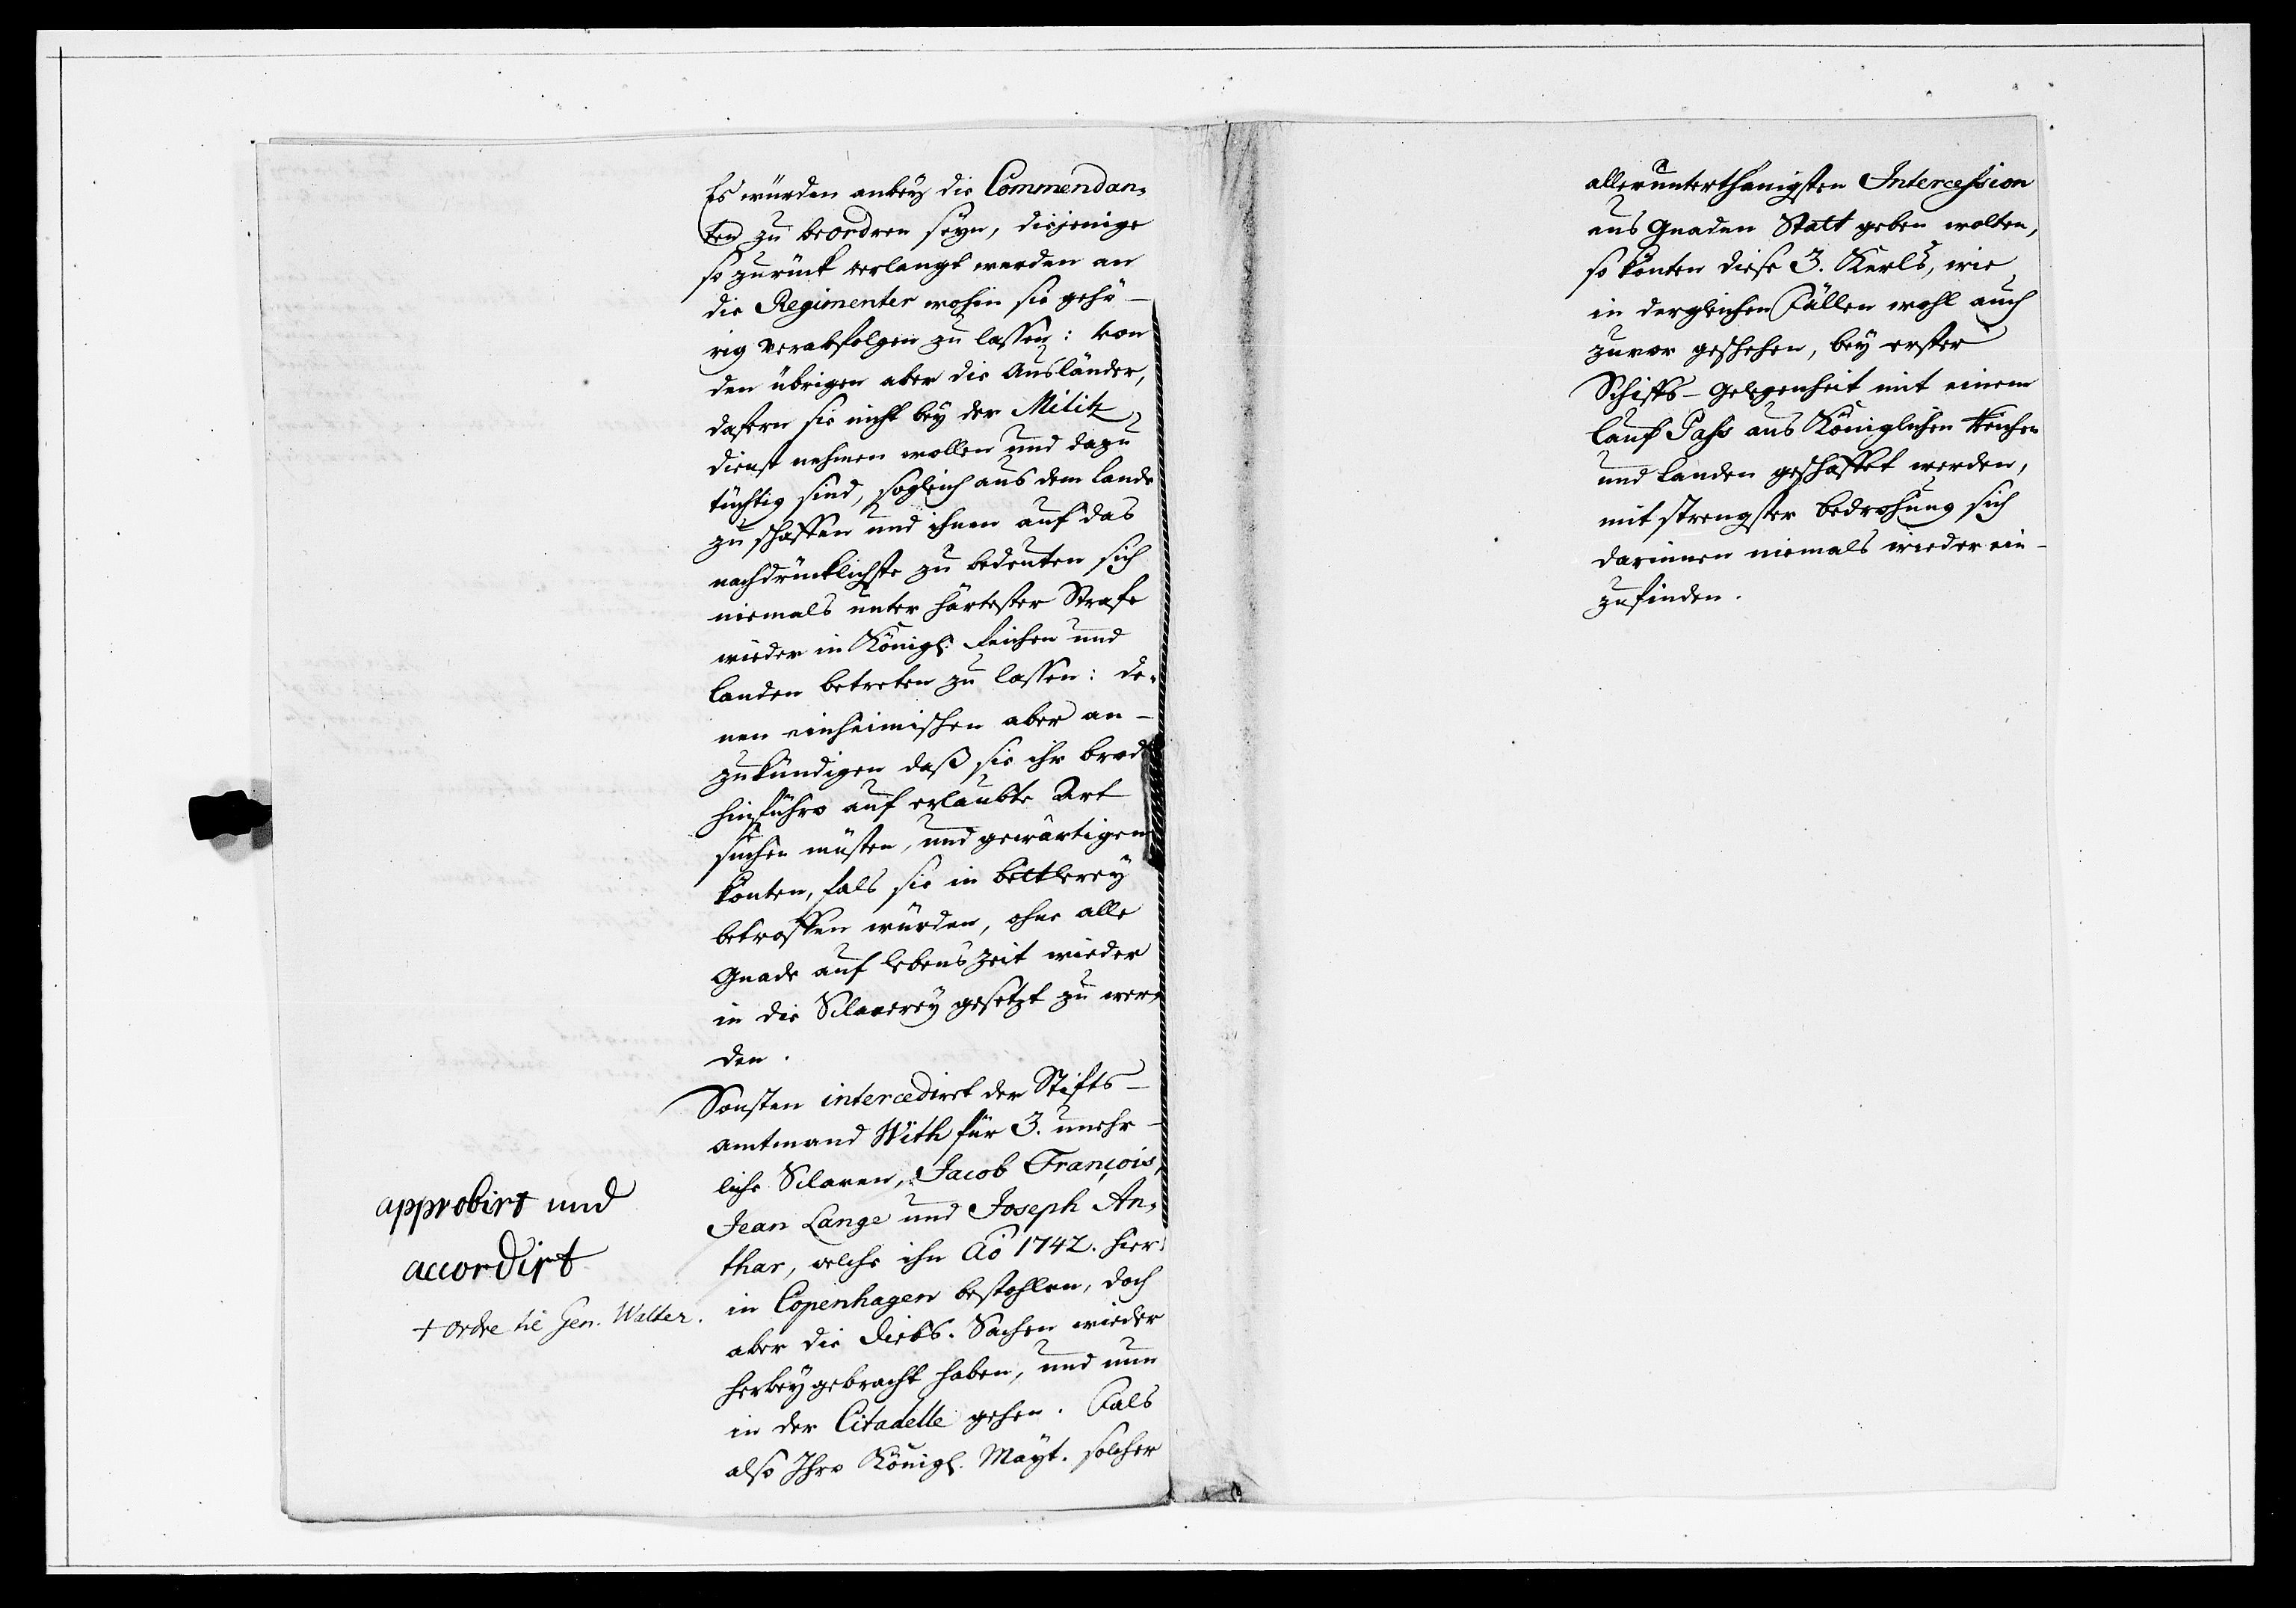 Es würden anbey die Commendan-
ten zu beordren seyn, diejenige
so zurück verlangt werden an
die Regimenter wohin sie gehö-
rig verabfolgen zu lassen: von
den übrigen aber die Ausländer,
dafern sie nicht bey der Militz
dienst nehmen wollen und dazu
tüchtig sind, sogleich aus dem lande
zu schaffen und ihnen auf das
nachdrücklichste zu bedeuten sich
niemals unter härtester Strafe
wieder in Königl. Reichen und
landen betreten zu lassen: de-
nen einheimischen aber an-
zukündigen daß sie ihr brod
hinführo auf erlaubte Art
suchen müsten, und gewärtigen
könten, fals sie in bettlerey
betroffen würden, ohne alle
Gnade auf lebens Zeit wieder
in die Sclaverey gesetzt zu wer-
den.
Sonsten intercedirt der Stifts-
amtmand With für 3. unehr-
liche Sclaven, Jacob François,
Jean Lange und Joseph An-
thar, welche ihn Aō 1742. hier
in Copenhagen bestohlen, doch
aber die diebs-Sachen wieder
herbey gebracht haben, und nun
in der Citadelle gehen. Fals
also Ihro Königl. Mayt. solcher
approbirt und
accordirt
+ ordre til Gen. Walter.
allerunterthänigsten Intercession
aus Gnaden Statt geben wolten,
so könten diese 3. Kerls, wie
in dergleichen Fällen wohl auch
zuvor geschehen, bey erster
Schiffs-Gelegenheit mit einem
lauf Pass aus Königlichen Reichen
und landen geschaffet werden,
mit strengster bedrohung sich
darinnen niemals wieder ein-
zufinden.